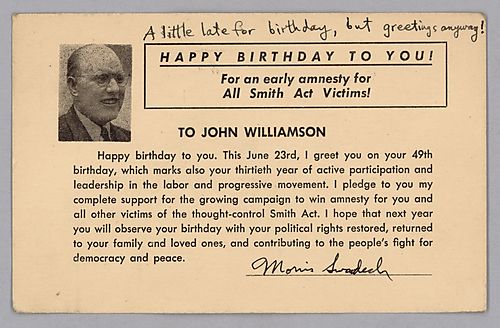 A little late for birthday, but greetings anyway!
HAPPY BIRTHDAY TO YOU!
For an early amnesty for
All Smith Act Victims!
TO JOHN WILLIAMSON
Happy birthday to you. This June 23rd, I greet you on your 49th
birthday, which marks also your thirtieth year of active participation and
leadership in the labor and progressive movement. I pledge to you my
complete support for the growing campaign to win amnesty for you and
all other victims of the thought-control Smith Act. I hope that next year
you will observe your birthday with your political rights restored, returned
to your family and loved ones, and contributing to the people's fight for
democracy and peace.
Morris Swadesh